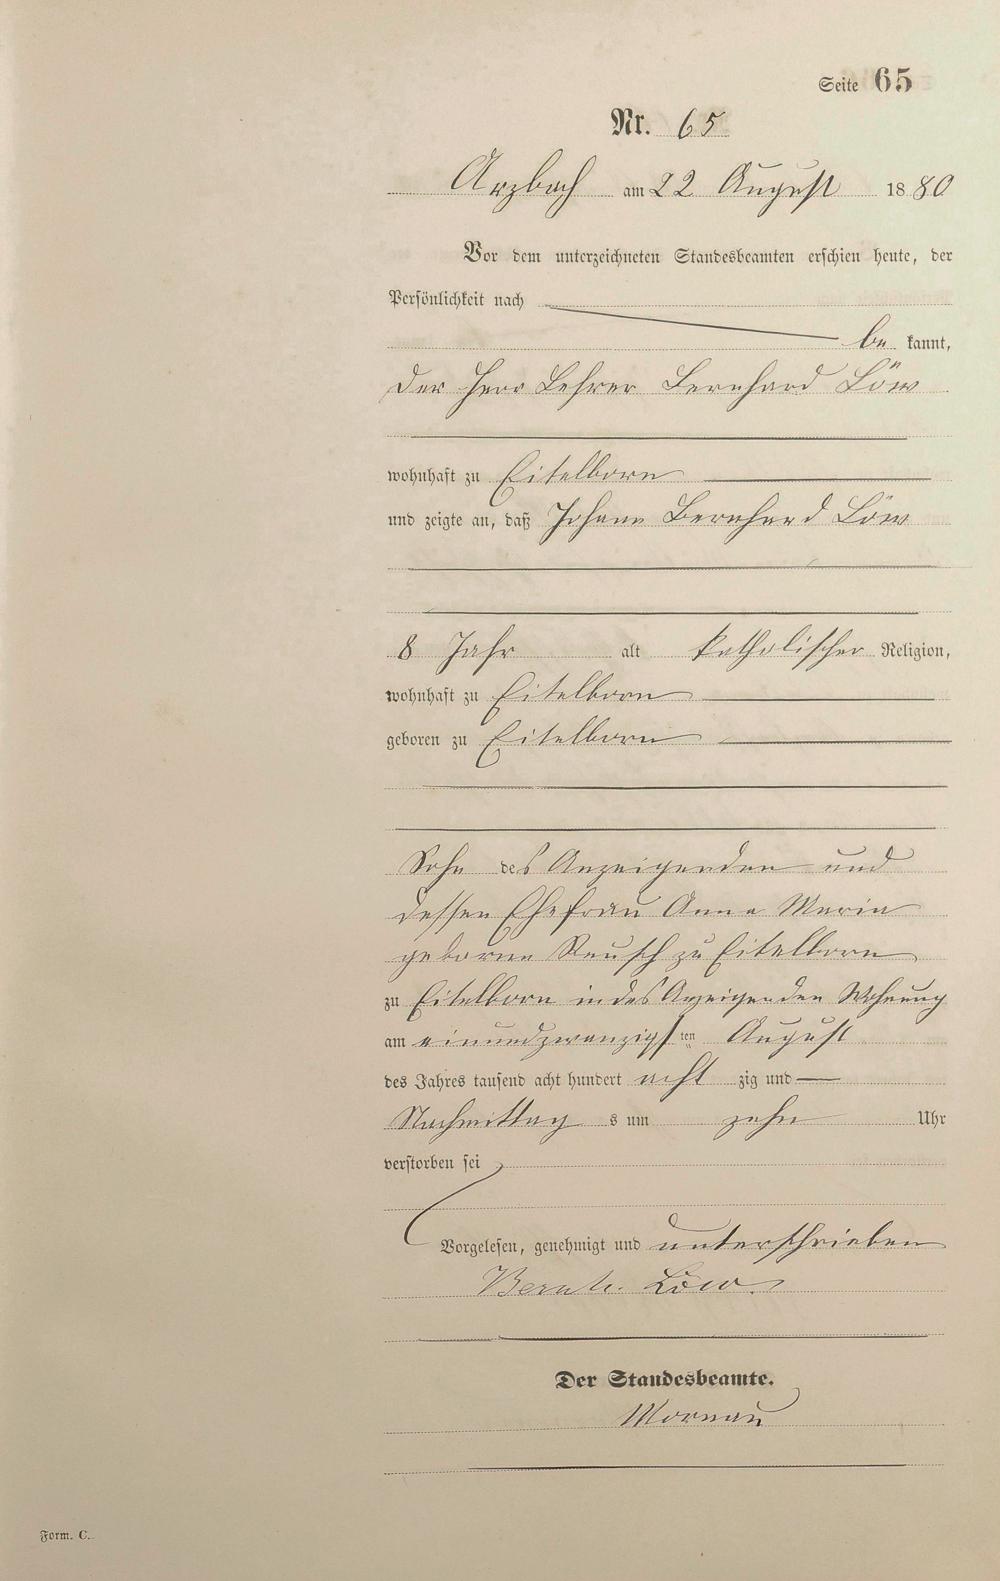 Seite 65
Nr. 65
Arzbach am 22 August 1880
Vor dem unterzeichneten Standesbeamten erschien heute, der
Persönlichkeit nach
be kannt,
der Herr Lehrer Bernhard Löw
wohnhaft zu Eitelborn
und zeigte an, daß Johann Bernhard Löw
8 Jahr alt katholischer Religion,
wohnhaft zu Eitelborn
geboren zu Eitelborn
Sohn des Anzeigenden und
dessen Ehefrau Anna Maria
geborne Reusch zu Eitelborn
zu Eitelborn in des Anzeigenden Wohnung
am einundzwanzigsten August
des Jahres tausend acht hundert acht zig und
Nachmittag s um zehn Uhr
verstorben sei
Vorgelesen, genehmigt und unterschrieben
Bernh. Löw.
Der Standesbeamte.
Mornau
Form. C.